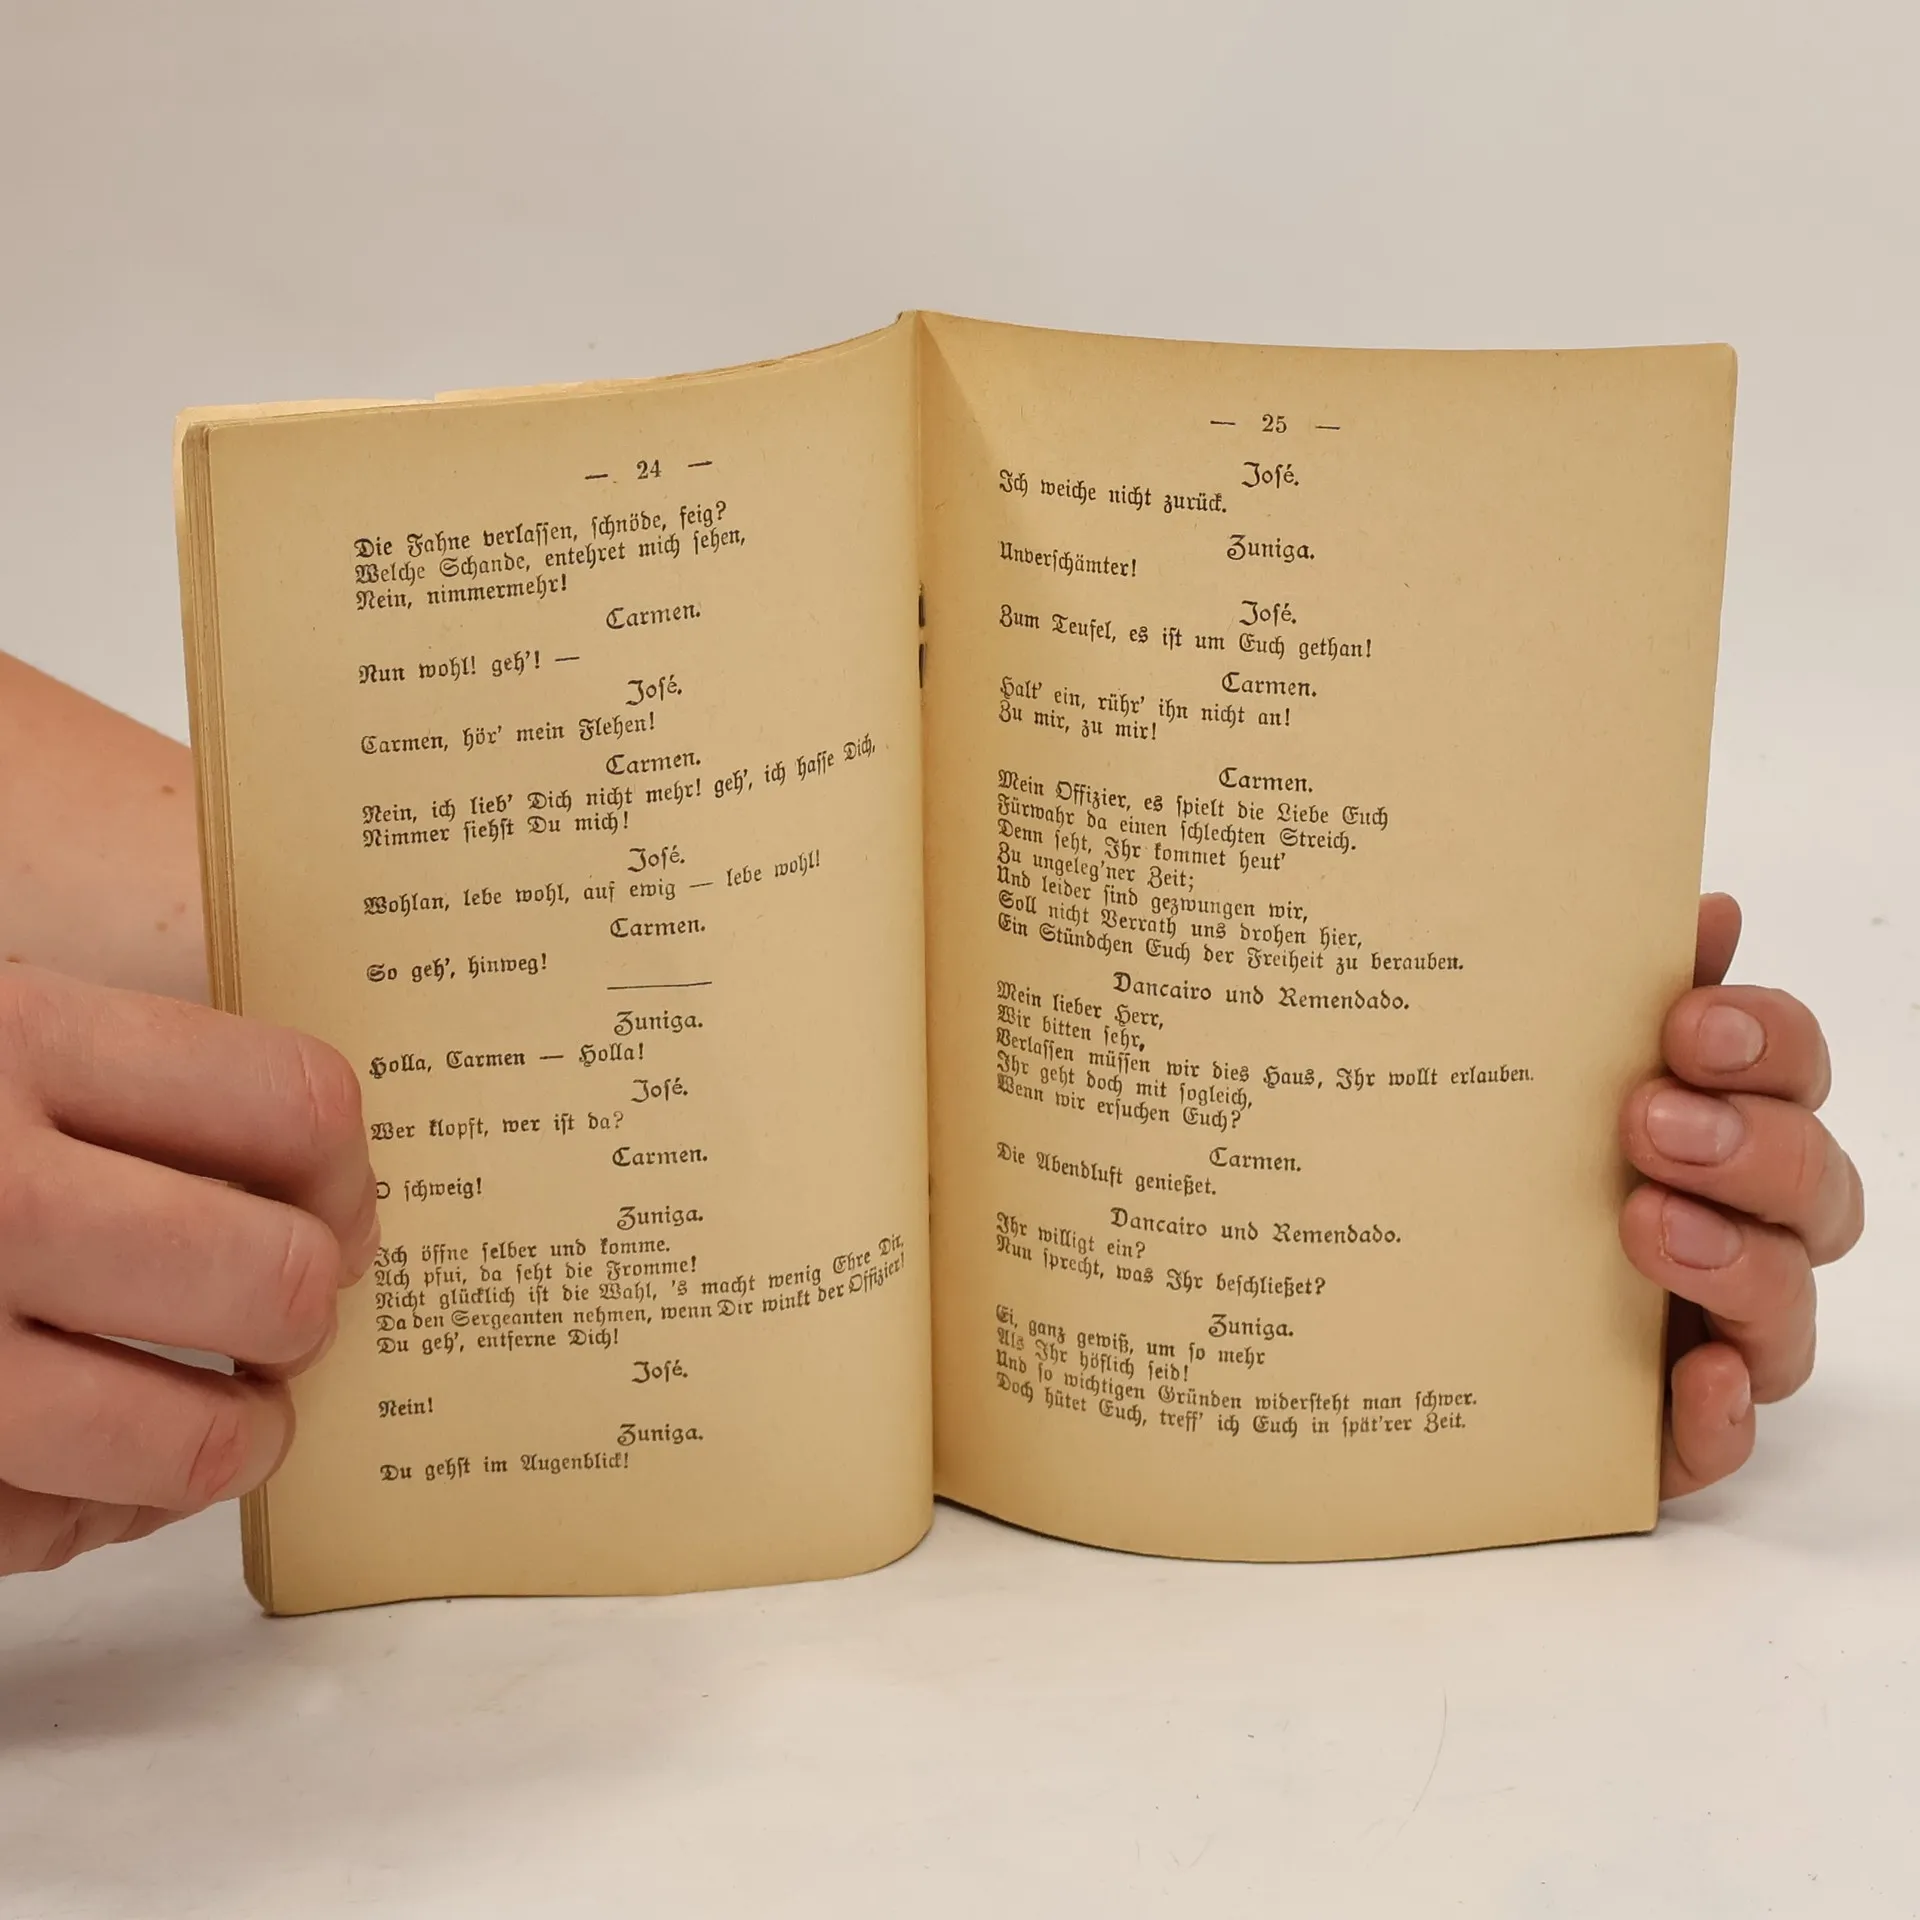 — 24 —
Die Fahne verlaſſen, ſchnöde, feig?
Welche Schande, entehret mich ſehen,
Nein, nimmermehr!
Carmen.
Nun wohl! geh'! —
Joſé.
Carmen, hör' mein Flehen!
Carmen.
Nein, ich lieb' Dich nicht mehr! geh', ich haſſe Dich,
Nimmer ſiehſt Du mich!
Joſé.
Wohlan, lebe wohl, auf ewig — lebe wohl!
Carmen.
So geh', hinweg!
Zuniga.
Holla, Carmen — Holla!
Joſé.
Wer klopft, wer iſt da?
Carmen.
O ſchweig!
Zuniga.
Ich öffne ſelber und komme.
Ach pfui, da ſeht die Fromme!
Nicht glücklich iſt die Wahl, 's macht wenig Ehre Dir,
Da den Sergeanten nehmen, wenn Dir winkt der Offizier!
Du geh', entferne Dich!
Joſé.
Nein!
Zuniga.
Du gehſt im Augenblick!
— 25 —
Joſé.
Ich weiche nicht zurück.
Zuniga.
Unverſchämter!
Joſé.
Zum Teufel, es iſt um Euch gethan!
Carmen.
Halt' ein, rühr' ihn nicht an!
Zu mir, zu mir!
Carmen.
Mein Offizier, es ſpielt die Liebe Euch
Fürwahr da einen ſchlechten Streich.
Denn ſeht, Ihr kommet heut'
Zu ungeleg'ner Zeit;
Und leider ſind gezwungen wir,
Soll nicht Verrath uns drohen hier,
Ein Stündchen Euch der Freiheit zu berauben.
Dancairo und Remendado.
Mein lieber Herr,
Wir bitten ſehr,
Verlaſſen müſſen wir dies Haus, Ihr wollt erlauben.
Ihr geht doch mit ſogleich,
Wenn wir erſuchen Euch?
Carmen.
Die Abendluft genießet.
Dancairo und Remendado.
Ihr willigt ein?
Nun ſprecht, was Ihr beſchließet?
Zuniga.
Ei, ganz gewiß, um ſo mehr
Als Ihr höflich ſeid!
Und ſo wichtigen Gründen widerſteht man ſchwer.
Doch hütet Euch, treff' ich Euch in ſpät'rer Zeit.